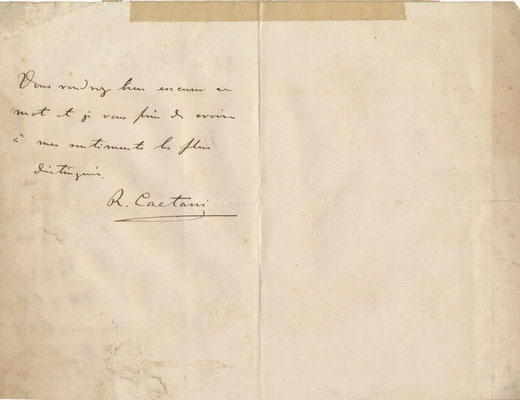 Vous voudrez bien excuser ce
mot et je vous prie de croire
à mes sentiments les plus
distingués.
R. Caetani